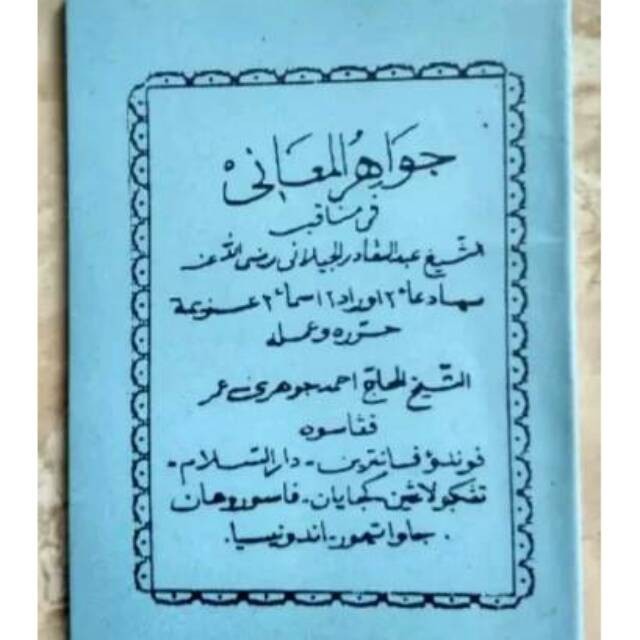 جَوَاهِرُ المَعَانِى
فى مناقب
الشّيخ عبد القادر الجيلانى رضى الله عنه
سها دعا٢ اوراد٢ اسما٢ عزيمة
حرّره وعمله
الشّيخ الحاج احمد جوهرى عمر
ڤڠاسوه
ڤوندؤ ڤسانترين - دار السّلام -
تڠكولاڠين كجايان - ڤاسوروهان
جاوا تيمور - اندونيسيا.